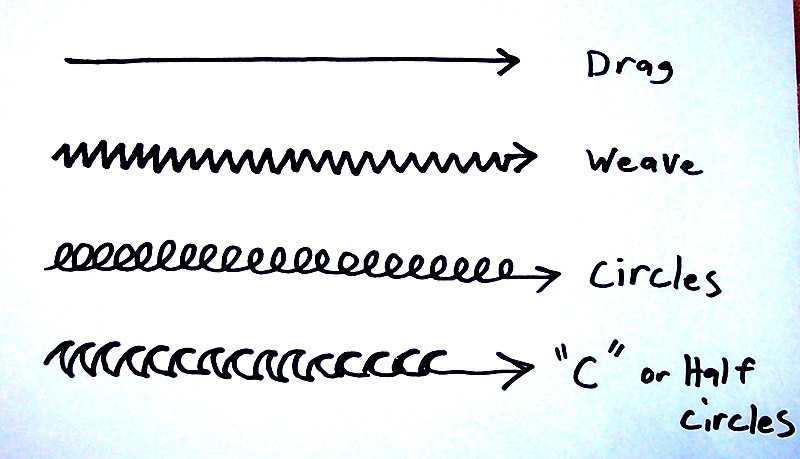 Drag
Weave
Circles
"C" or Half
circles